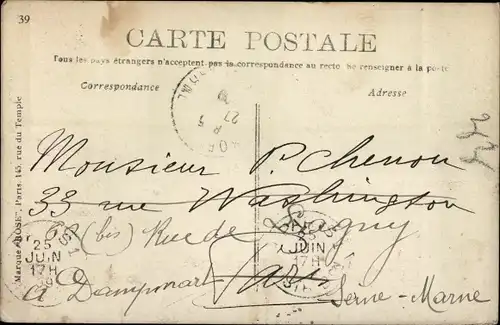 39
CARTE POSTALE
Tous les pays étrangers n'acceptent pas la correspondance au recto. Se renseigner à la poste
Correspondance
Adresse
Marque "ROSE", Paris, 145, rue du Temple
27
5
Monsieur P. Chenou
33 rue Washington
(bis) Rue de Lagny
à Dampmart Paris
Seine-Marne
25
JUIN
17H
JUIN
17H